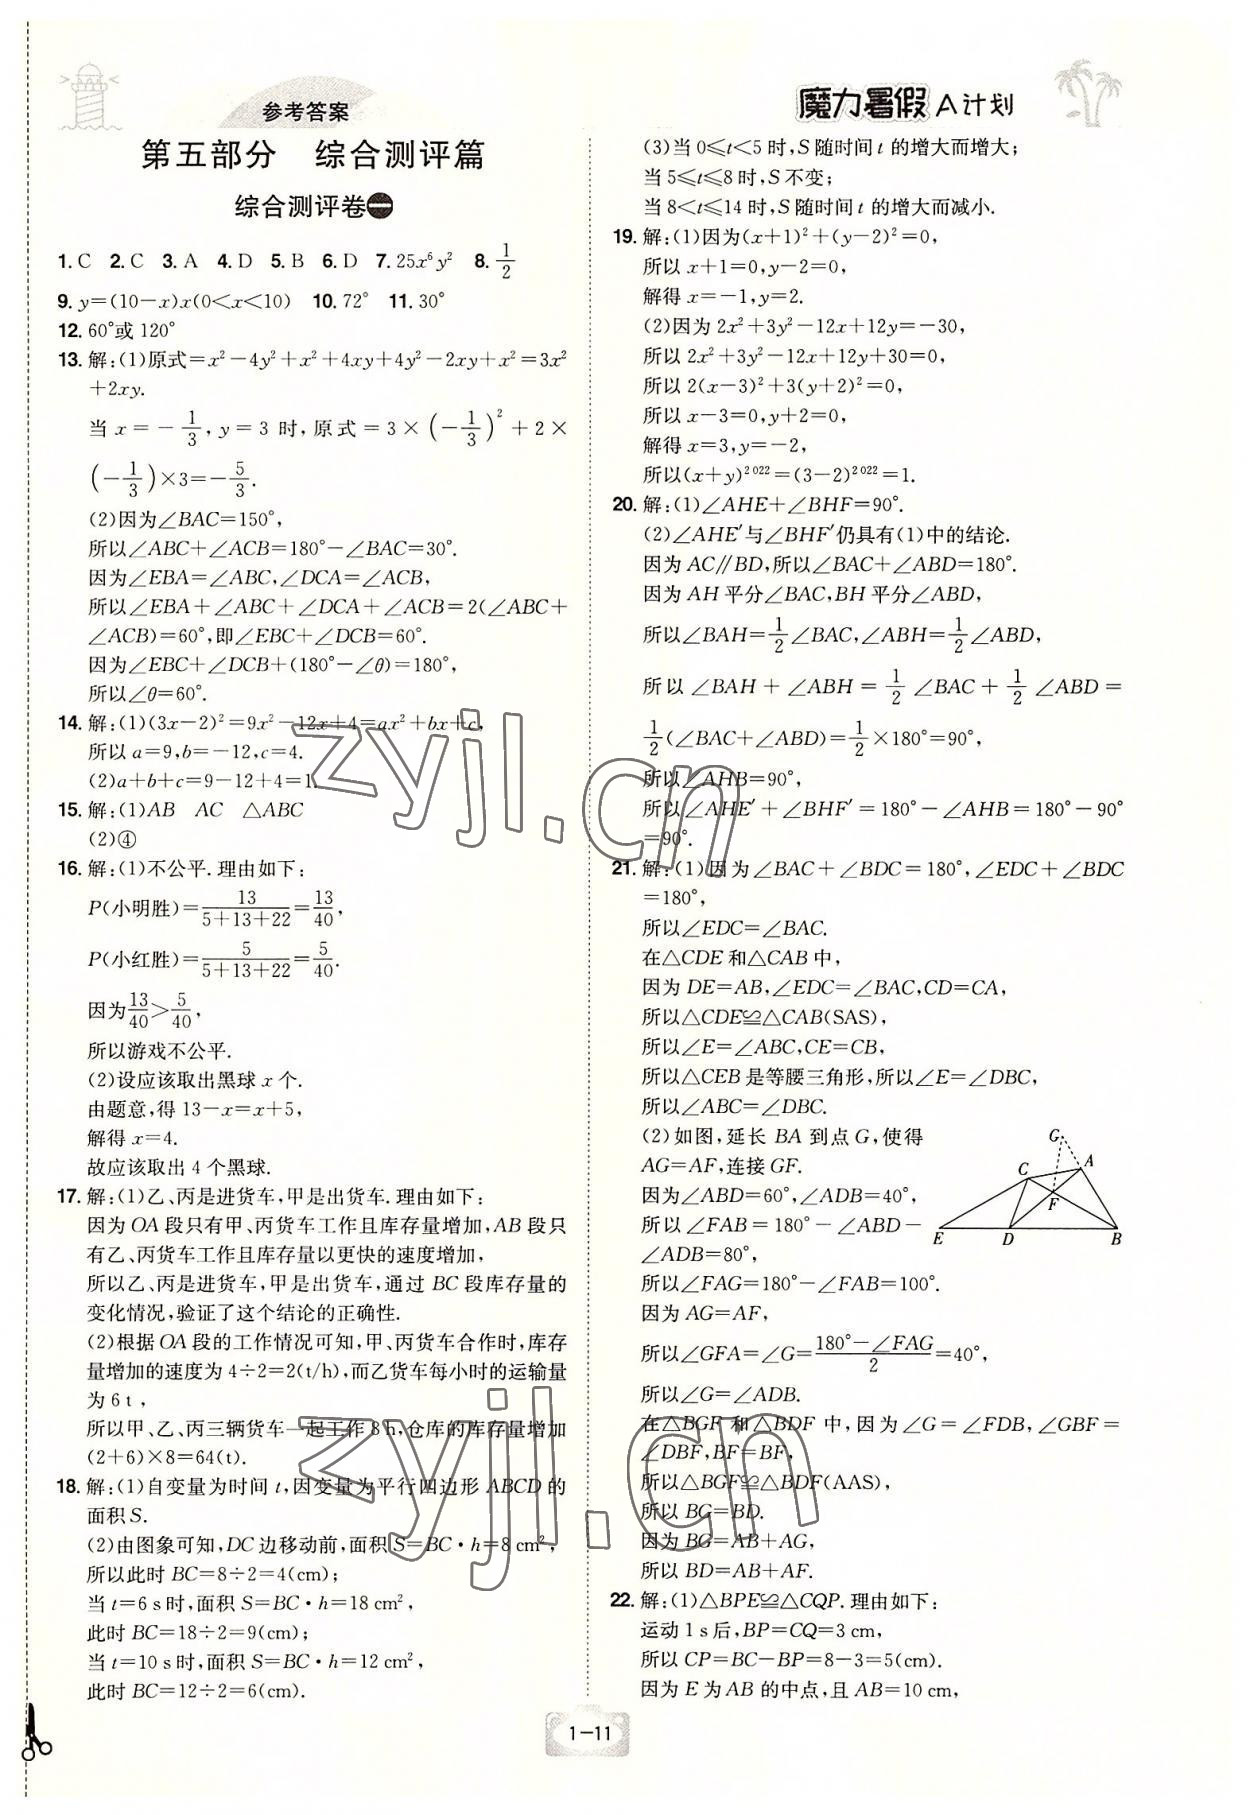 参考答案
魔力暑假A计划
第五部分 综合测评篇
综合测评卷一
1. C 2. C 3. A 4. D 5. B 6. D 7. 25x⁶y² 8. 1/2
9. y=(10-x)x(0<x<10) 10. 72° 11. 30°
12. 60°或120°
13. 解:(1)原式=x²-4y²+x²+4xy+4y²-2xy+x²=3x²
+2xy.
当x=-1/3,y=3时,原式=3×(-1/3)²+2×
(-1/3)×3=-5/3.
(2)因为∠BAC=150°,
所以∠ABC+∠ACB=180°-∠BAC=30°.
因为∠EBA=∠ABC,∠DCA=∠ACB,
所以∠EBA+∠ABC+∠DCA+∠ACB=2(∠ABC+
∠ACB)=60°,即∠EBC+∠DCB=60°.
因为∠EBC+∠DCB+(180°-∠θ)=180°,
所以∠θ=60°.
14. 解:(1)(3x-2)²=9x²-12x+4=ax²+bx+c,
所以a=9,b=-12,c=4.
(2)a+b+c=9-12+4=1.
15. 解:(1)AB AC △ABC
(2)④
16. 解:(1)不公平.理由如下:
P(小明胜)=13/(5+13+22)=13/40,
P(小红胜)=5/(5+13+22)=5/40.
因为13/40>5/40,
所以游戏不公平.
(2)设应该取出黑球x个.
由题意,得13-x=x+5,
解得x=4.
故应该取出4个黑球.
17. 解:(1)乙、丙是进货车,甲是出货车.理由如下:
因为OA段只有甲、丙货车工作且库存量增加,AB段只
有乙、丙货车工作且库存量以更快的速度增加,
所以乙、丙是进货车,甲是出货车,通过BC段库存量的
变化情况,验证了这个结论的正确性.
(2)根据OA段的工作情况可知,甲、丙货车合作时,库存
量增加的速度为4÷2=2(t/h),而乙货车每小时的运输量
为6 t,
所以甲、乙、丙三辆货车一起工作8 h,仓库的库存量增加
(2+6)×8=64(t).
18. 解:(1)自变量为时间t,因变量为平行四边形ABCD的
面积S.
(2)由图象可知,DC边移动前,面积S=BC·h=8 cm²,
所以此时BC=8÷2=4(cm);
当t=6 s时,面积S=BC·h=18 cm²,
此时BC=18÷2=9(cm);
当t=10 s时,面积S=BC·h=12 cm²,
此时BC=12÷2=6(cm).
(3)当0≤t<5时,S随时间t的增大而增大;
当5≤t≤8时,S不变;
当8<t≤14时,S随时间t的增大而减小.
19. 解:(1)因为(x+1)²+(y-2)²=0,
所以x+1=0,y-2=0,
解得x=-1,y=2.
(2)因为2x²+3y²-12x+12y=-30,
所以2x²+3y²-12x+12y+30=0,
所以2(x-3)²+3(y+2)²=0,
所以x-3=0,y+2=0,
解得x=3,y=-2,
所以(x+y)²⁰²²=(3-2)²⁰²²=1.
20. 解:(1)∠AHE+∠BHF=90°.
(2)∠AHE′与∠BHF′仍具有(1)中的结论.
因为AC∥BD,所以∠BAC+∠ABD=180°.
因为AH平分∠BAC,BH平分∠ABD,
所以∠BAH=1/2∠BAC,∠ABH=1/2∠ABD,
所以∠BAH+∠ABH=1/2∠BAC+1/2∠ABD=
1/2(∠BAC+∠ABD)=1/2×180°=90°,
所以∠AHB=90°,
所以∠AHE′+∠BHF′=180°-∠AHB=180°-90°
=90°.
21. 解:(1)因为∠BAC+∠BDC=180°,∠EDC+∠BDC
=180°,
所以∠EDC=∠BAC.
在△CDE和△CAB中,
因为DE=AB,∠EDC=∠BAC,CD=CA,
所以△CDE≌△CAB(SAS),
所以∠E=∠ABC,CE=CB,
所以△CEB是等腰三角形,所以∠E=∠DBC,
所以∠ABC=∠DBC.
(2)如图,延长BA到点G,使得
AG=AF,连接GF.
因为∠ABD=60°,∠ADB=40°,
所以∠FAB=180°-∠ABD-
∠ADB=80°,
所以∠FAG=180°-∠FAB=100°.
因为AG=AF,
所以∠GFA=∠G=(180°-∠FAG)/2=40°,
所以∠G=∠ADB.
在△BGF和△BDF中,因为∠G=∠FDB,∠GBF=
∠DBF,BF=BF,
所以△BGF≌△BDF(AAS),
所以BG=BD.
因为BG=AB+AG,
所以BD=AB+AF.
G
C
A
F
E
D
B
22. 解:(1)△BPE≌△CQP.理由如下:
运动1 s后,BP=CQ=3 cm,
所以CP=BC-BP=8-3=5(cm).
因为E为AB的中点,且AB=10 cm,
1-11
zyjl.cn
zyjl.cn